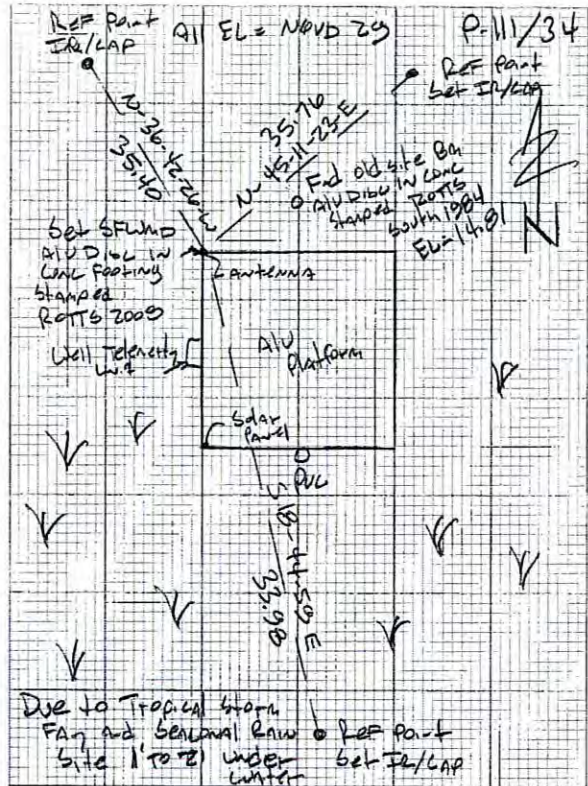 Ref Point
IR/CAP
All EL = NGVD 29
P-111/34
Ref Point
Set IR/CAP
N-36-42-26-W
35.40
35.76
N-45-11-23-E
Fnd old site Bm
Alu Disc in conc
Stamped ROTTS
South 1984
EL=14.81
N
Set SFWMD
Alu Disc in
conc footing
Stamped
ROTTS 2009
ANTENNA
Well Telemetry
Unit
Alu
Platform
Solar
Panel
PVC
S 18-44-59 E
33.98
Due to Tropical Storm
Fay and Seasonal Rain
Site 1' to 2' under
water
Ref Point
Set IR/CAP